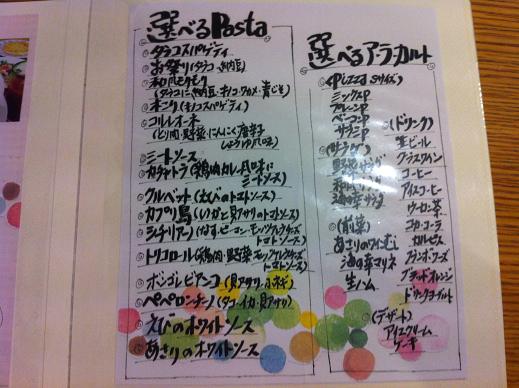 選べるPasta
◎タラコスパゲティ
◎お祭り(タラコ、納豆)
◎和風
(タラコ、納豆・キノコ・ワカメ・青じそ)
◎木こり(キノコスパゲティ)
◎コルレオーネ
(とり肉・野菜・にんにく唐辛子
しょうゆ味)
◎ミートソース
◎カチャトラ(鶏肉カレー風味に
ミートソース)
◎クルベット(えびのトマトソース)
◎カプリ島(いかと貝アサリのトマトソース)
◎シチリアーノ(なす・ピーマン・モッツァレラチーズ
トマトソース)
◎トリコロール(鶏肉・野菜・モッツァレラチーズ
トマトソース)
◎ボンゴレビアンコ(貝アサリ・ネギ)
◎ペペロンチーノ(タコ・イカ・貝アサリ)
◎えびのホワイトソース
◎あさりのホワイトソース
選べるアラカルト
◎(Pizza Sサイズ)
ミックスP
プレーンP
ベーコンP
サラミP
◎(サラダ)
野菜サラダ
サラダ
海の幸サラダ
◎(前菜)
あさりのワインむし
海の幸マリネ
生ハム
◎(ドリンク)
生ビール
グラスワイン
コーヒー
アイスコーヒー
ウーロン茶
コカ・コーラ
カルピス
ブラッドオレンジ
ドリンクヨーグルト
◎(デザート)
アイスクリーム
ケーキ